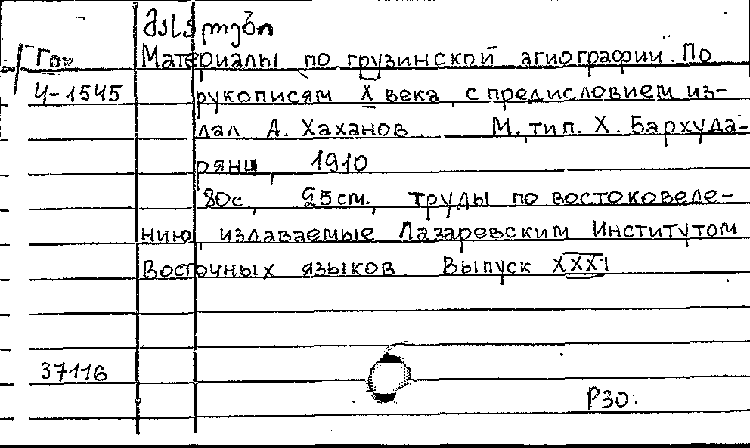 მასალები
Гоч Материалы по грузинской агиографии. По
Ч-1545 рукописям X века, с предисловием из-
дал А. Хаханов М, тип. Х. Бархуда-
рянц, 1910
80с, 25см, труды по востоковеде-
нию, издаваемые Лазаревским Институтом
Восточных языков Выпуск XXXI
37116
Р30.